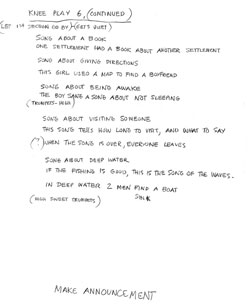 KNEE PLAY 6, (CONTINUED)
(LET 1ST SECTION GO BY) (GETS QUIET)
SONG ABOUT A BOOK
ONE SETTLEMENT HAD A BOOK ABOUT ANOTHER SETTLEMENT
SONG ABOUT GIVING DIRECTIONS
THIS GIRL USED A MAP TO FIND A BOYFRIEND
SONG ABOUT BEING AWAKE
THE BOY SANG A SONG ABOUT NOT SLEEPING
(TRUMPETS - HIGH)
SONG ABOUT VISITING SOMEONE
THIS SONG TELLS HOW LONG TO VISIT, AND WHAT TO SAY
(?) WHEN THE SONG IS OVER, EVERYONE LEAVES
SONG ABOUT DEEP WATER
IF THE FISHING IS GOOD, THIS IS THE SONG OF THE WAVES.
IN DEEP WATER 2 MEN FIND A BOAT
(HIGH SWEET TRUMPETS)
SINK
MAKE ANNOUNCEMENT